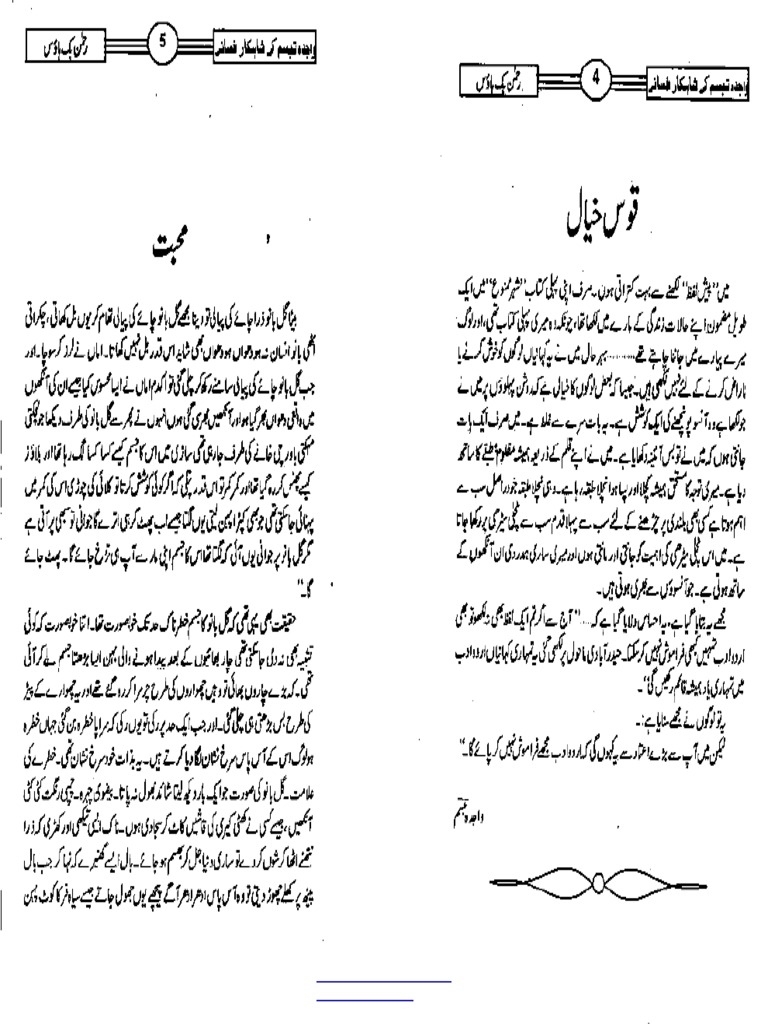 واجدہ تبسم کی شاہکار فسانے
4
رحمٰن بک ہاؤس
قوسِ خیال
میں "پیش لفظ" لکھنے سے بہت کتراتی ہوں۔ صرف اپنی پہلی کتاب "شہر ممنوع" میں ایک
طویل مضمون اپنے حالات زندگی کے بارے میں لکھا تھا، چونکہ وہ میری پہلی کتاب تھی، اور لوگ
میرے بارے میں جاننا چاہتے تھے ......... بہر حال میں نے یہ کہانیاں لوگوں کو خوش کرنے یا
ناراض کرنے کے لئے نہیں لکھی ہیں۔ جیسا کہ بعض لوگوں کا خیال ہے کہ روشن پہلوؤں پر میں نے
جو لکھا ہے وہ آنسو پونچھنے کی ایک کوشش ہے۔ یہ بات سرے سے غلط ہے۔ میں صرف ایک بات
جانتی ہوں کہ میں نے تو بس آئینہ دکھایا ہے۔ میں نے اپنے قلم کے ذریعہ ہمیشہ مظلوم طبقے کا ساتھ
دیا ہے۔ میری توجہ کا مستحق ہمیشہ کچلا اور پسا ہوا نچلا طبقہ رہا ہے۔ وہی نچلا طبقہ جو دراصل سب سے
اہم ہوتا ہے کسی بھی بلندی پر چڑھنے کے لئے سب سے پہلا قدم سب سے نچلی سیڑھی پر رکھا جاتا
ہے۔ میں اس نچلی سیڑھی کی اہمیت کو جانتی اور مانتی ہوں اور میری ساری ہمدردی ان آنکھوں کے
ساتھ ہوتی ہے۔ جو آنسوؤں سے بھری ہوتی ہیں۔
مجھے یہ بتایا گیا ہے، یہ احساس دلایا گیا ہے کہ ....." آج سے اگر تم ایک لفظ بھی نہ لکھو تو بھی
اردو ادب تمہیں کبھی فراموش نہیں کر سکتا۔ حیدرآبادی ماحول پر لکھی گئی یہ تمہاری کہانیاں اور اردو ادب
میں تمہاری یاد ہمیشہ قائم رکھیں گی"۔
یہ تو لوگوں نے مجھے سنایا ہے:۔
لیکن میں آپ سے بڑے اعتماد سے یہ کہوں گی کہ اردو ادب مجھے فراموش نہیں کر پائے گا۔"
واجدہ تبسم
واجدہ تبسم کی شاہکار فسانے
5
رحمٰن بک ہاؤس
محبت
بیٹا گل بانو ذرا چائے کی پیالی تو دینا مجھے گل بانو چائے کی پیالی تھام کر یوں بل کھاتی، چکراتی
اٹھی بانو انسان نہ ہو دھواں ہو دھواں بھی شاید اس قدر بل نہیں کھاتا۔ اماں نے لرز کر سوچا۔ اور
جب گل بانو چائے کی پیالی سامنے رکھ کر چلی گئی تو اکدم اماں نے ایسا محسوس کیا جیسے ان کی آنکھوں
میں واقعی دھواں بھر گیا ہو اور آنکھیں بھری گئی ہوں انہوں نے پھر سے گل بانو کی طرف دیکھا جو لچکتی
مٹکتی باورچی خانے کی طرف جا رہی تھی ساڑی میں اس کا جسم کیسے کسا کسا لگ رہا تھا اور بلاؤز
کیسے پھنس کر رہ گیا تھا اور کمر کمر تو اس قدر پتلی کہ اگر کوئی کوشش کرتا تو کلائی کی چوڑی اس کی کمر میں
پہنائی جا سکتی تھی جو بھی کپڑا پہن لیتی یوں لگتا جیسے اب پھٹ کر ہی اترے گا جوانی تو سبھی پر آتی ہے
مگر گل بانو پر جوانی یوں آئی کہ لگتا تھا اس کا جسم اپنی مار سے آپ ہی تڑخ جائے گا۔ پھٹ جائے
گا۔"
حقیقت بھی یہی تھی کہ گل بانو کا جسم خطرناک حد تک خوبصورت تھا۔ اتنا خوبصورت کہ کوئی
تشبیہ بھی نہ دی جا سکتی تھی چار بھائیوں کے بعد پیدا ہونے والی بہن ایسا بڑھتا جسم لے کر آئی
تھی۔ کہ بڑے چاروں بھائی تو وہیں چھواروں کی طرح چرمرا کر رہ گئے تھے اور یہ چھوارے کے پیڑ
کی طرح بس بڑھتی ہی چلی گئی۔ اور جب ایک حد پر رکی تو یوں رکی کہ سراپا خطرہ بن گئی جہاں خطرہ
ہو لوگ اس کے آس پاس سرخ نشان لگا دیا کرتے ہیں۔ یہ بذات خود سرخ نشان تھی۔ خطرے کی
علامت۔ گل بانو کی صورت جو ایک بار دیکھ لیتا شائد بھول نہ پاتا۔ بیضوی چہرہ۔ چمپی رنگت کٹی کٹی
آنکھیں، جیسے کسی نے کھٹی کیری کی قاشیں کاٹ کر سجا دی ہوں۔ ناک ایسی تیکھی اور کھڑی کہ ذرا
نتھنے اٹھا کر شوں کر دے تو ساری دنیا جل کر بھسم ہو جائے۔ بال ایسے گھنیرے کہ نہا کر جب بال
پیٹھ پر کھلے چھوڑ دیتی تو وہ آس پاس ادھر ادھر آگے پیچھے یوں جھول جاتے جیسے سیاہ فر کا کوٹ پہن